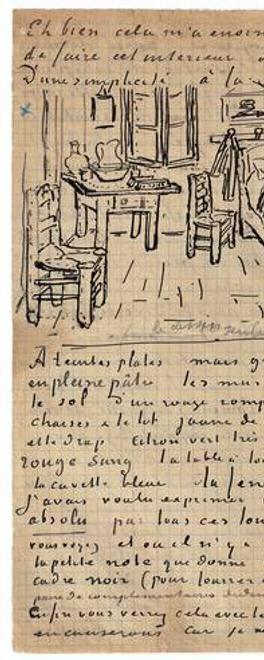 Eh bien cela m'a enorm
de faire cet interieur
D'une simplicité à la
le dessin seule
A teintes plates mais g
en pleine pâte les mur
le sol d'un rouge romp
chaises & le lit jaune de
et le drap citron vert très
rouge sang la table à to
la cuvette bleue la fen
J'avais voulu exprimer
absolu par tous ces to
vous voyez et où il n'y a
la petite note que donne
cadre noir (pour fourrer
paire de complementaires dedan
Enfin vous verrez cela avec le
en causerons car je n